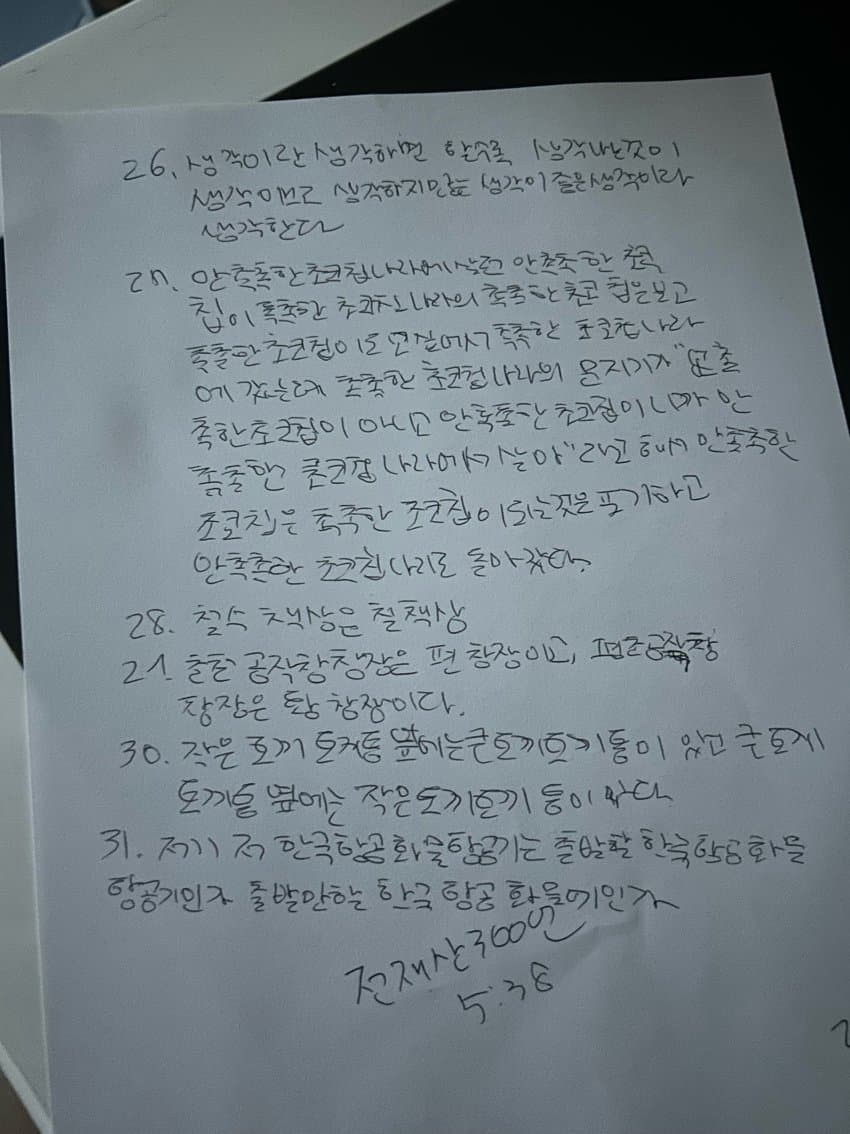 26. 생각이란 생각하면 할수록 생각나는것이
생각이므로 생각하지않는 생각이 좋은생각이라
생각한다
27. 안촉촉한초코칩나라에살던 안촉촉한 초코
칩이 촉촉한 초코칩나라의 촉촉한초코칩을보고
촉촉한초코칩이 되고싶어서 촉촉한 초코칩나라
에 갔는데 촉촉한 초코칩나라의 문지기가 "넌촉
촉한초코칩이 아니고 안촉촉한 초코칩이니까 안
촉촉한 초코칩나라에서살아"라고 해서 안촉촉한
초코칩은 촉촉한 초코칩이되는것을 포기하고
안촉촉한 초코칩나라로 돌아갔다.
28. 철수 책상은 철책상
29. 춘천 공작창창장은 편창장이고, 평촌공작창
창장은 황창장이다.
30. 작은 토끼 토끼통 옆에는큰토끼토끼통이 있고 큰토끼
토끼통 옆에는 작은토끼토끼 통이 있다
31. 저기 저 한국항공화물항공기는 출발할 한국항공화물
항공기인가 출발안하는 한국 항공 화물기인가
전재산300원
5:38